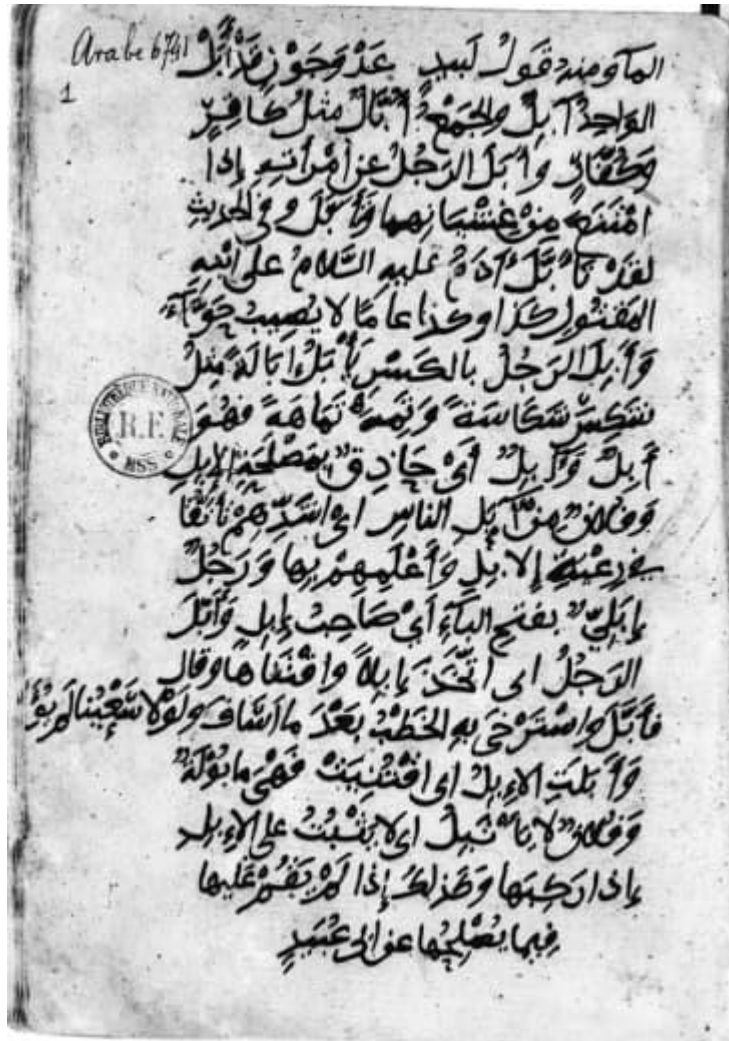 Arabe 6741
1
المآ ومنه قَوْلُ لَبيدٍ عَدْ وَجَوْنٍ قَدْ أَبَلْ
الوَاحِدُ آبِلٌ والجَمْعُ أُبَّالٌ مثلُ كافِرٍ
وَكُفَّارٍ وَأَبَلَ الرَجُلُ عن امْرَأتِهِ إذا
امْتَنَعَ مِنْ غِشْيَانِهَا وَتَأَبَّلَ وفى الحديثِ
لقَدْ تَأَبَّلَ آدَمُ عليهِ السَّلامُ على ابْنِهِ
المَقْتُولِ كذا وكذا عامًا لا يُصِيبُ حَوَّآءَ
وَأَبِلَ الرَجُلُ بالكَسْرِ يَأْبَلُ اَبَالَةً مِثلُ
شَكِسَ شَكَاسَةً وَتَمِهَ تَمَاهَةً فهُوَ
أَبِلٌ وَآبِلٌ أىْ حَاذِقٌ بمَصْلَحَةِ الإبِلِ
وَفُلانٌ مِنْ آبَلِ الناسِ اى اشَدِّهِمْ تَأَنُّقًا
فى رِعْيَةِ الإبِلِ وَأَعْلَمِهِمْ بِها وَرَجُلٌ
إِبَلِىٌّ بفتحِ البآءِ أىْ صَاحِبُ إبِلٍ وَأَبَّلَ
الرَجُلُ اى اتَّخَذَ إبِلاً وَاقْتَنَاهَا وقال
فأَبَّلَ وَاسْتَرْخَى بِهِ الخَطْبُ بَعْدَ ما اَسَافَ وَلَوْلا سَعْيُنا لم يُؤَ
وَأُبِلَتِ الإبِلُ اى اقْتُنِيَتْ فَهْىَ مَأْبُولَةٌ
وَفُلانٌ لا يَأْتَبِلُ اى لا يَثْبُتُ على الإبِلِ
إِذا رَكِبَها وَكذلِكَ إِذا لَمْ يَقُمْ عَليها
فِيما يُصْلِحُها عن ابى عُبَيدٍ
BIBLIOTHÈQUE NATIONALE
R.F.
MSS